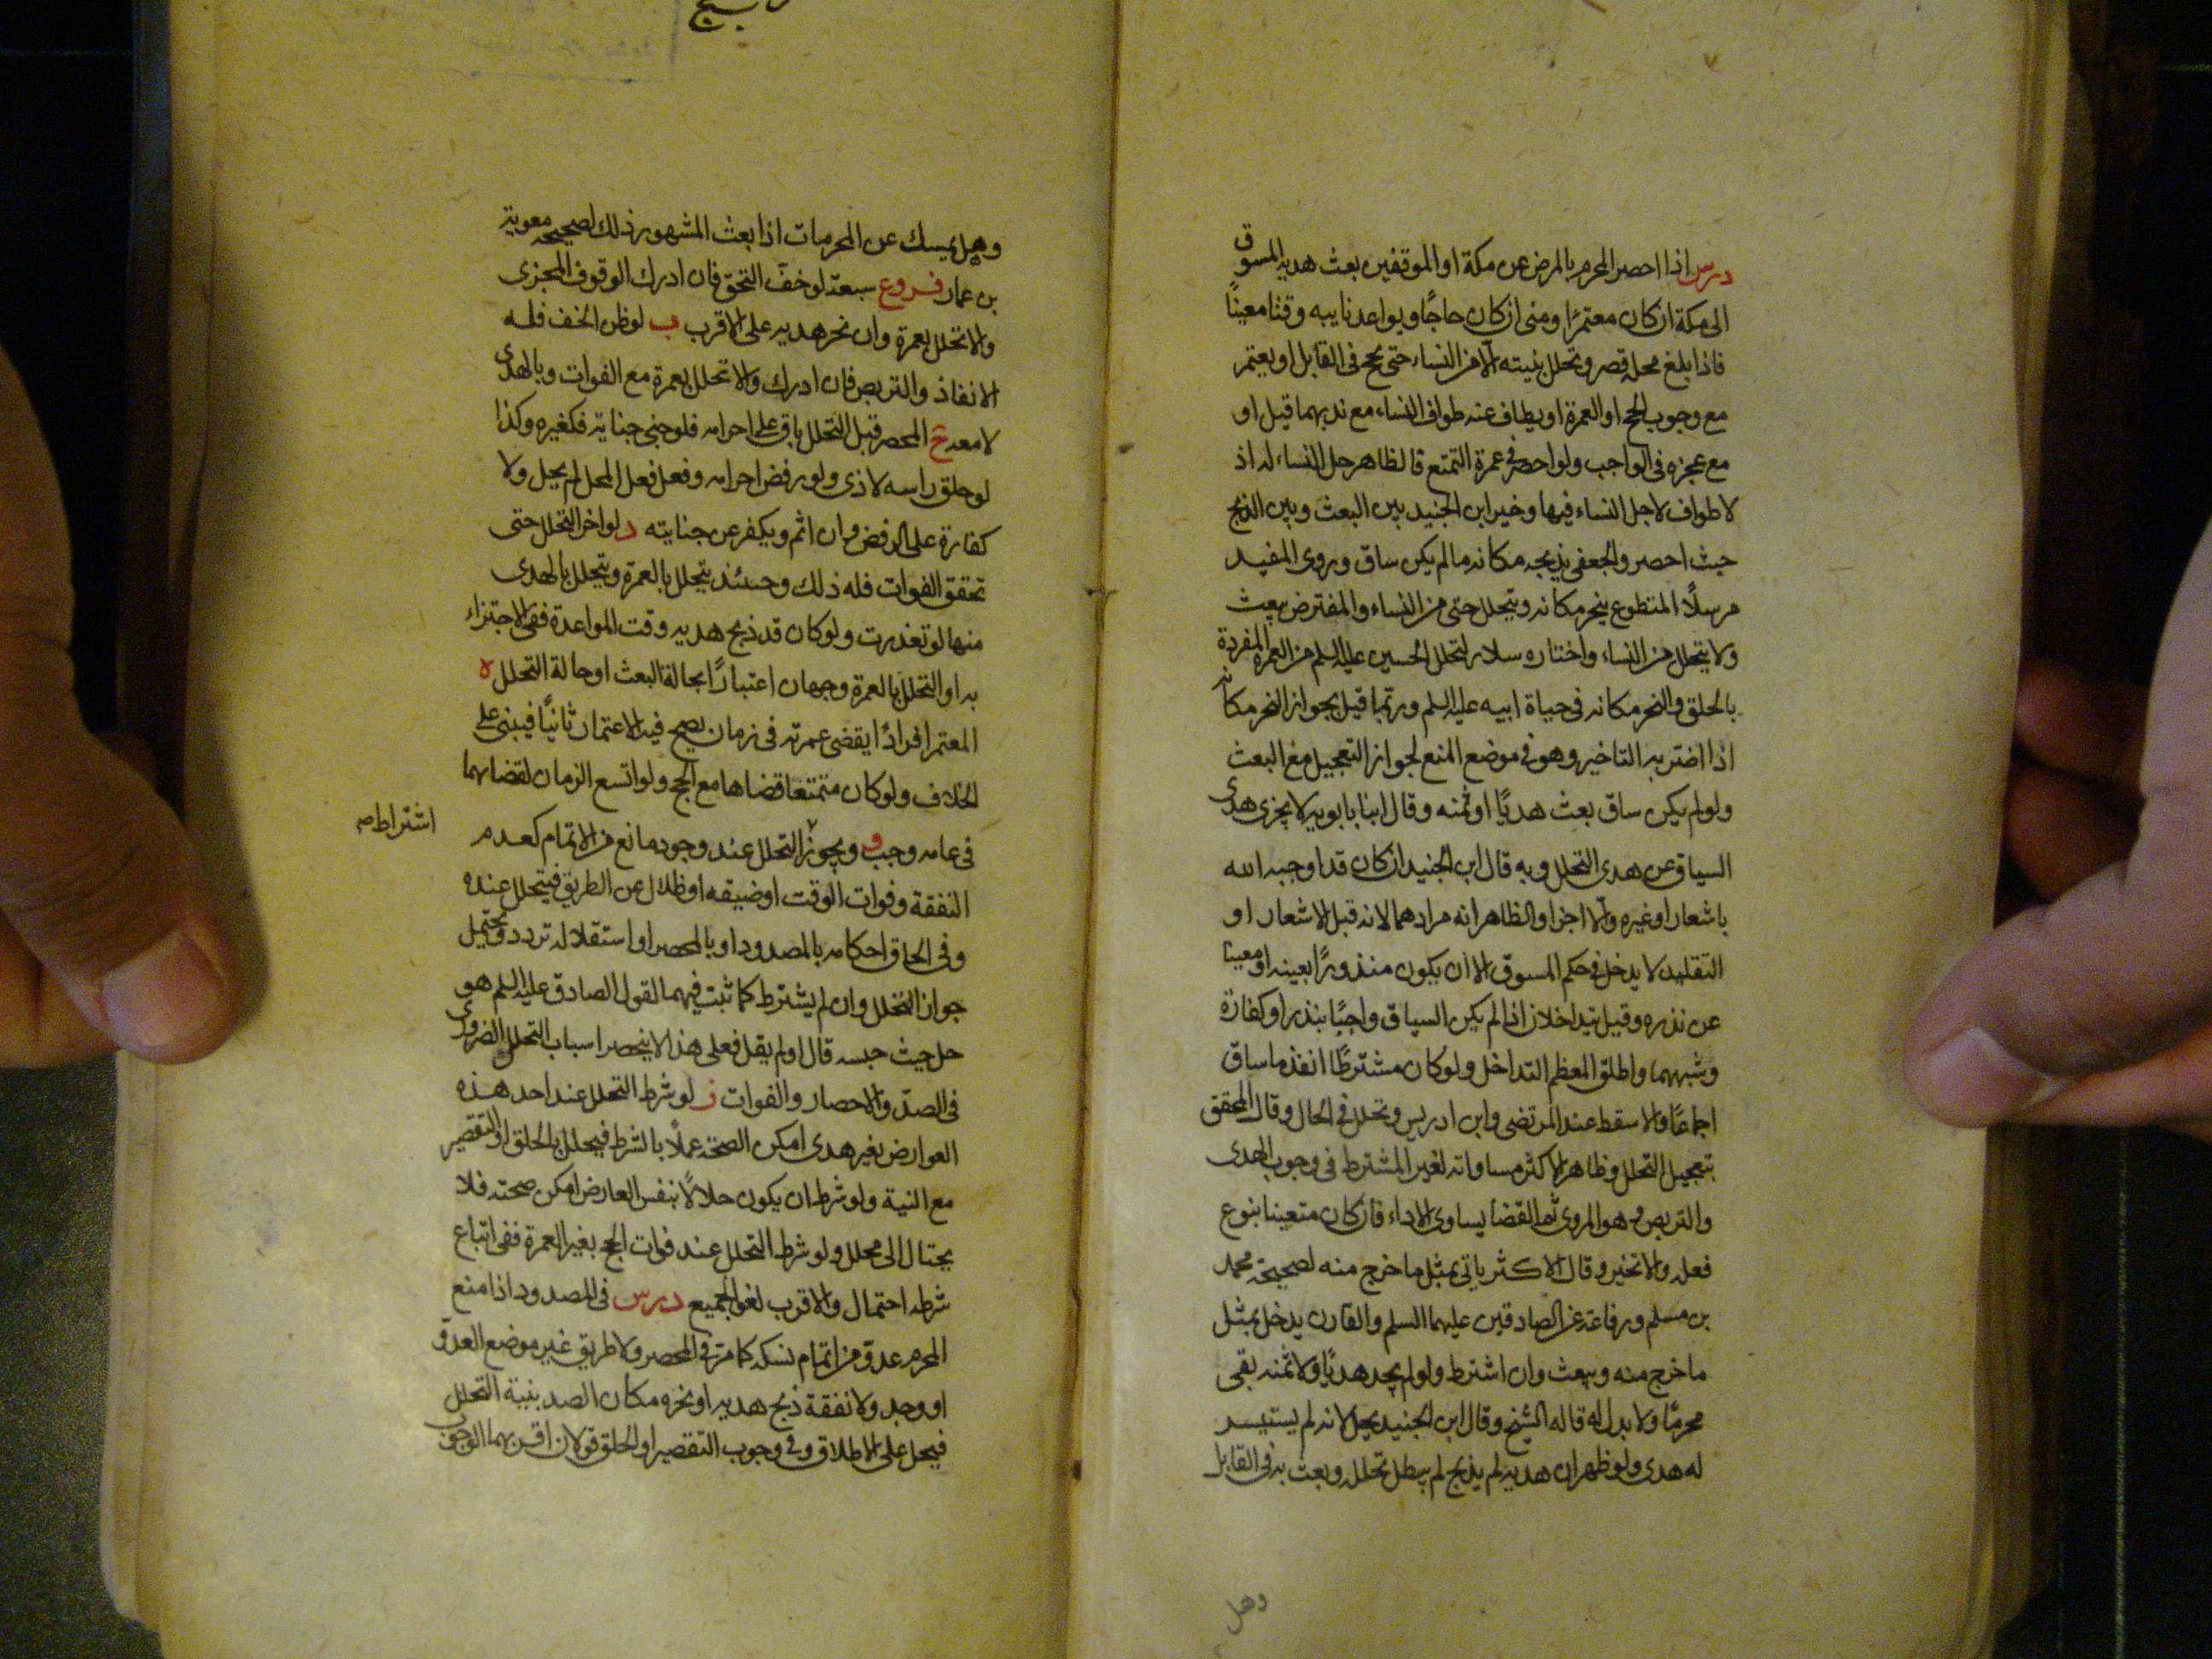 درس اذا احصر المحرم بالمرض عن مكة او الموقفين بعث هديه المسوق
الى مكة ان كان معتمرًا ومنى ان كان حاجًا ويواعد نايبه وقتا معينًا
فاذا بلغ محله قصر وتحلل بنيته الا من النساء حتى يحج فى القابل او يعتمر
مع وجوب الحج او العمرة او يطاف عنه طواف النساء مع ندبهما قيل او
مع عجزه فى الواجب ولو احصر فى عمرة التمتع فالظاهر حل النساء له اذ
لا طواف لاجل النساء فيها وخير ابن الجنيد بين البعث وبين الذبح
حيث احصر والجعفى يذبحه مكانه ما لم يكن ساق وروى المفيد
مرسلًا المتطوع ينحر مكانه ويتحلل حتى من النساء والمفترض يبعث
ولا يتحلل من النساء واختاره سلار لتحلل الحسين عليه السلم من العمرة المفردة
بالحلق والنحر مكانه فى حياة ابيه عليه السلم وربما قيل بجواز النحر مكانه
اذا اضتر به التاخير وهو فى موضع المنع لجواز التعجيل مع البعث
ولو لم يكن ساق بعث هديًا او ثمنه وقال ابنا بابويه لا يجزى هدى
السياق عن هدى التحلل وبه قال ابن الجنيد ان كان قد اوجبه الله
باشعار او غيره والا اجزا والظاهر انه مرادهما لانه قبل الاشعار او
التقليد لا يدخل فى حكم المسوق الا ان يكون منذورًا بعينه او معينا
عن نذره وقيل يتداخلان اذا لم يكن السياق واجبًا بنذر او كفارة
وشبههما واطلق المعظم التداخل ولو كان مشترطًا انفذ ما ساق
اجماعًا والا سقط عند المرتضى وابن ادريس وتحلل فى الحال وقال المحقق
بتعجيل التحلل وظاهر الاكثر مساواته لغير المشترط فى وجوب الهدى
والتربص وهو المروى ثم القضا يساوى الاداء فان كان متعينا بنوع
فعله والا تخير وقال الاكثر ياتى بمثل ما خرج منه لصحيحة محمد
بن مسلم ورفاعة عن الصادقين عليهما السلم والقارن يدخل بمثل
ما خرج منه ويبعث وان اشترط ولو لم يجد هديًا ولا ثمنه بقى
محرمًا ولا بدل له قاله الشيخ وقال ابن الجنيد يحل لانه لم يستيسر
له هدى ولو ظهر ان هديه لم يذبح لم يبطل تحلله وبعث به فى القابل
وهل
وهل يمسك عن المحرمات اذا بعث المشهور ذلك لصحيحة معوية
بن عمار فروع سبعة لو خف التحق فان ادرك الوقوف المجزى
والا تحلل بعمرة وان نحر هديه على الاقرب ب لو ظن الخف فله
الانفاذ والتربص فان ادرك والا تحلل بعمرة مع الفوات وبالهدى
لا معه ج المحصر قبل التحلل باق على احرامه فلو جنى جناية فكغيره وكذا
لو حلق راسه لاذى ولو رفض احرامه وفعل فعل المحل لم يحل ولا
كفارة على الرفض وان اثم ويكفر عن جنايته د لو اخر التحلل حتى
تحقق الفوات فله ذلك وحينئذ يتحلل بالعمرة ويتحلل بالهدى
منها لو تعذرت ولو كان قد ذبح هديه وقت المواعدة ففى الاجتزاء
به او التحلل بالعمرة وجهان اعتبارًا بحالة البعث او حالة التحلل ه
المعتمر افرادًا يقضى عمرته فى زمان يصح فيه الاعتمار ثانيًا فيبنى على
الخلاف ولو كان متمتعا قضاها مع الحج ولو اتسع الزمان لقضائهما
فى عامه وجب و ويجوز التحلل عند وجود مانع من الاتمام كعدم
اشتراط صح
النفقة وفوات الوقت او ضيقه او ظلال عن الطريق فيتحلل عنده
وفى الحاق احكامه بالمصدود او بالمحصر او استقلاله تردد ويحتمل
جواز التحلل وان لم يشترط كما ثبت فيهما لقول الصادق عليه السلم هو
حل حيث حبسه قال او لم يقل فعلى هذا لا ينحصر اسباب التحلل الضرورى
فى الصد والاحصار والفوات ز لو شرط التحلل عند احد هذه
العوارض بغير هدى امكن الصحة عملًا بالشرط فيحلل بالحلق او التقصير
مع النية ولو شرط ان يكون حلالًا بنفس العارض امكن صحته فلا
يحتال الى محلل ولو شرط التحلل عند فوات الحج بغير العمرة ففى اتباع
شرطه احتمال والاقرب لغو الجميع درس فى المصدود اذا منع
المحرم عدو من اتمام نسكه كما مر فى المحصر ولا طريق غير موضع العدو
او وجد ولا نفقة ذبح هديه او نحره مكان الصد بنية التحلل
فيحل على الاطلاق وفى وجوب التقصير او الحلق قولان اقربهما الوجوب